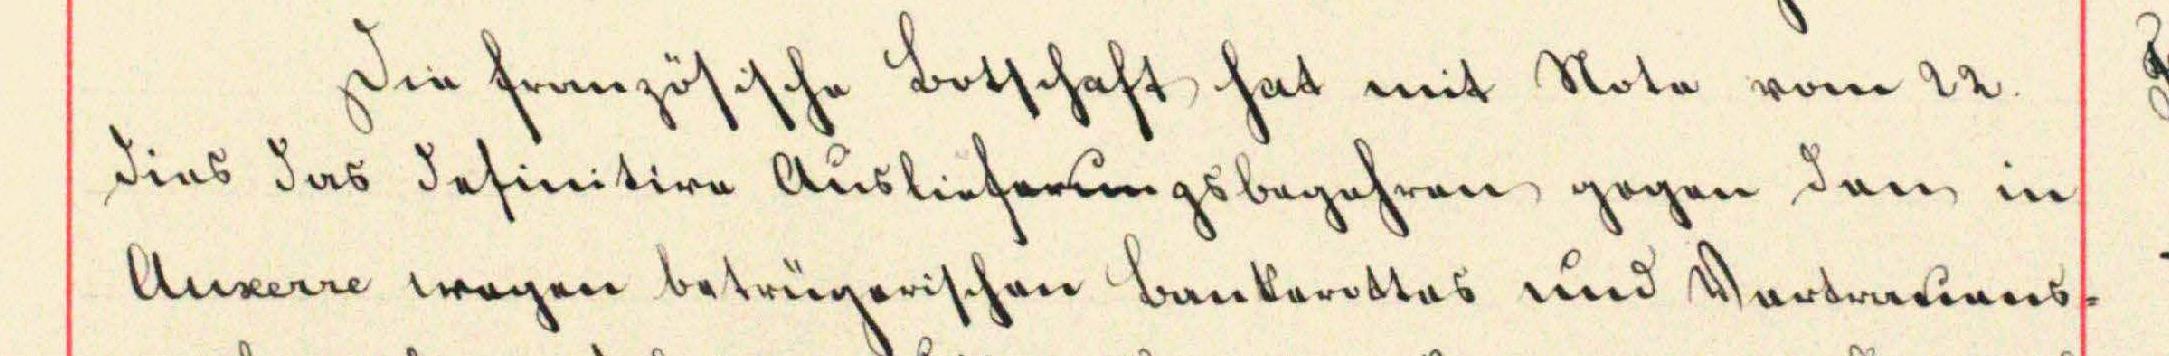 Die französische Botschaft hat mit Note vom 22.
dies das definitive Auslieferungsbegehren gegen den in
Auxerre wegen betrügerischen Bankerottes und Vertrauens-